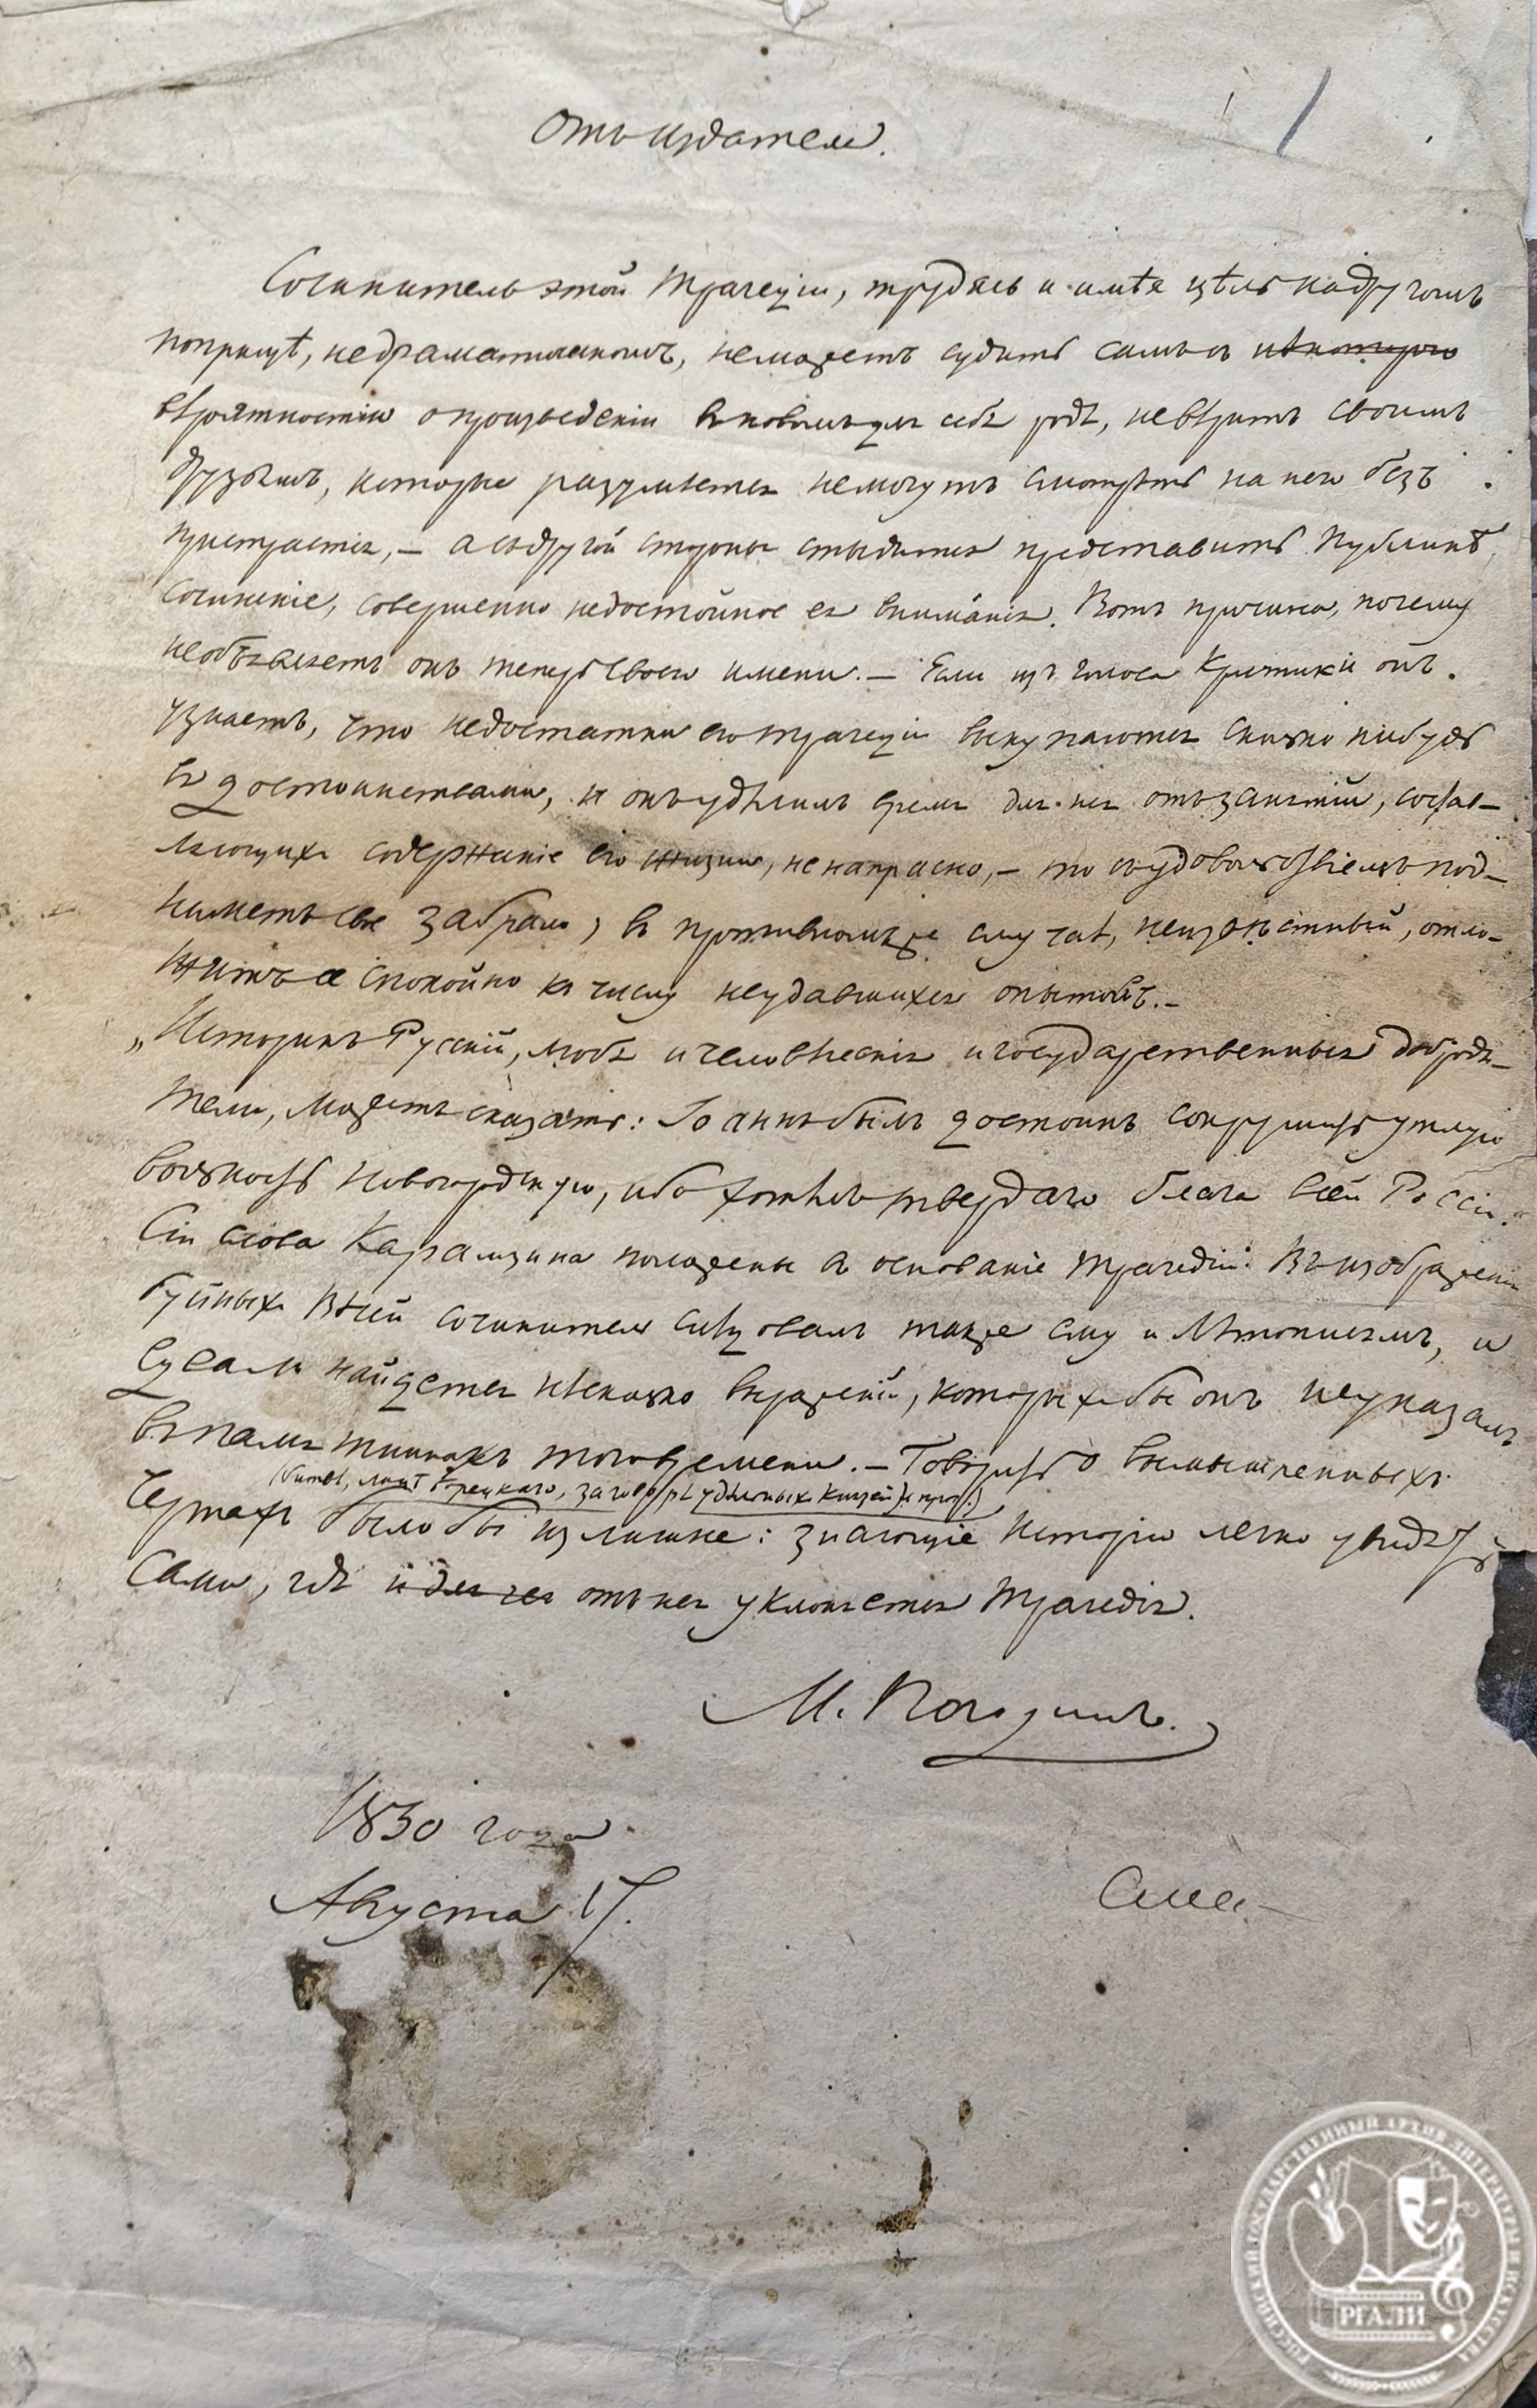 Отъ издателя.
Сочинитель этой Трагедіи, трудясь и имѣя цѣль на другомъ
поприщѣ, не драматическомъ, не можетъ судить самъ съ нѣкоторою
вѣроятностію о произведеніи въ новомъ для себя родѣ, не вѣритъ своимъ
друзьямъ, которые разумѣется не могутъ смотрѣть на него безъ
пристрастія, – а съ другой стороны стыдится представить Публикѣ
сочиненіе, совершенно недостойное ея вниманія. Вотъ причина, почему
не объявляетъ онъ теперь своего имени. – Если изъ голоса Критики онъ
узнаетъ, что недостатки его трагедіи выкупаются сколько нибудь
ея достоинствами, и онъ удѣлилъ время для нея отъ занятій, состав-
ляющихъ содержаніе его жизни, не напрасно, – то съ удовольствіемъ под-
ниметъ свое забрало; въ противномъ же случаѣ, неизвѣстный, отло-
житъ ее спокойно къ числу неудавшихся опытовъ. –
„Историкъ Русскій, любя и человѣческія и государственныя добродѣ-
тели, можетъ сказать: Іоаннъ былъ достоинъ сокрушить утлую
вольность Новогородскую, ибо хотѣлъ твердаго блага всей Россіи."
Сіи слова Карамзина положены въ основаніе трагедіи. Въ изображеніи
буйныхъ Вѣчей сочинитель слѣдовалъ также ему и Лѣтописямъ, и
едва ли найдется нѣсколько выраженій, которыхъ бы онъ не указалъ
въ памятникахъ того времени. – Говорить о вымышленныхъ
(битвѣ, заговорѣ удѣльныхъ Князей и проч.)
чертахъ было бы излишне: знающіе Исторію легко увидятъ
сами, гдѣ отъ нея уклоняется Трагедія.
М. Погодинъ.
1830 года
Августа 17.
РОССИЙСКИЙ ГОСУДАРСТВЕННЫЙ АРХИВ ЛИТЕРАТУРЫ И ИСКУССТВА
РГАЛИ